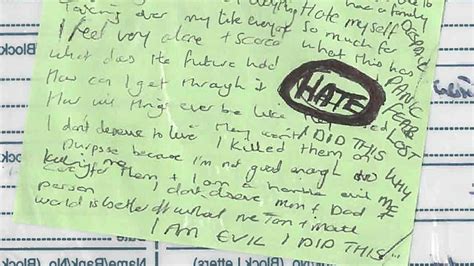 to have a family
taking over my life everyday Hate myself
I feel very alone + scared so much for what this has
DESPAIR
PANIC
FEAR
LOST
what does the future hold
How can I get through it
HATE
How will things ever be like
I don't deserve to live I DID THIS
I killed them on
purpose because I'm not good enough
WHY ME
to care for them + I am a horrible evil
person I don't deserve mum + Dad
world is better off without me
I AM EVIL I DID THIS
(Block
Name/Bank/No. (Block Letters)
(Block Letters)